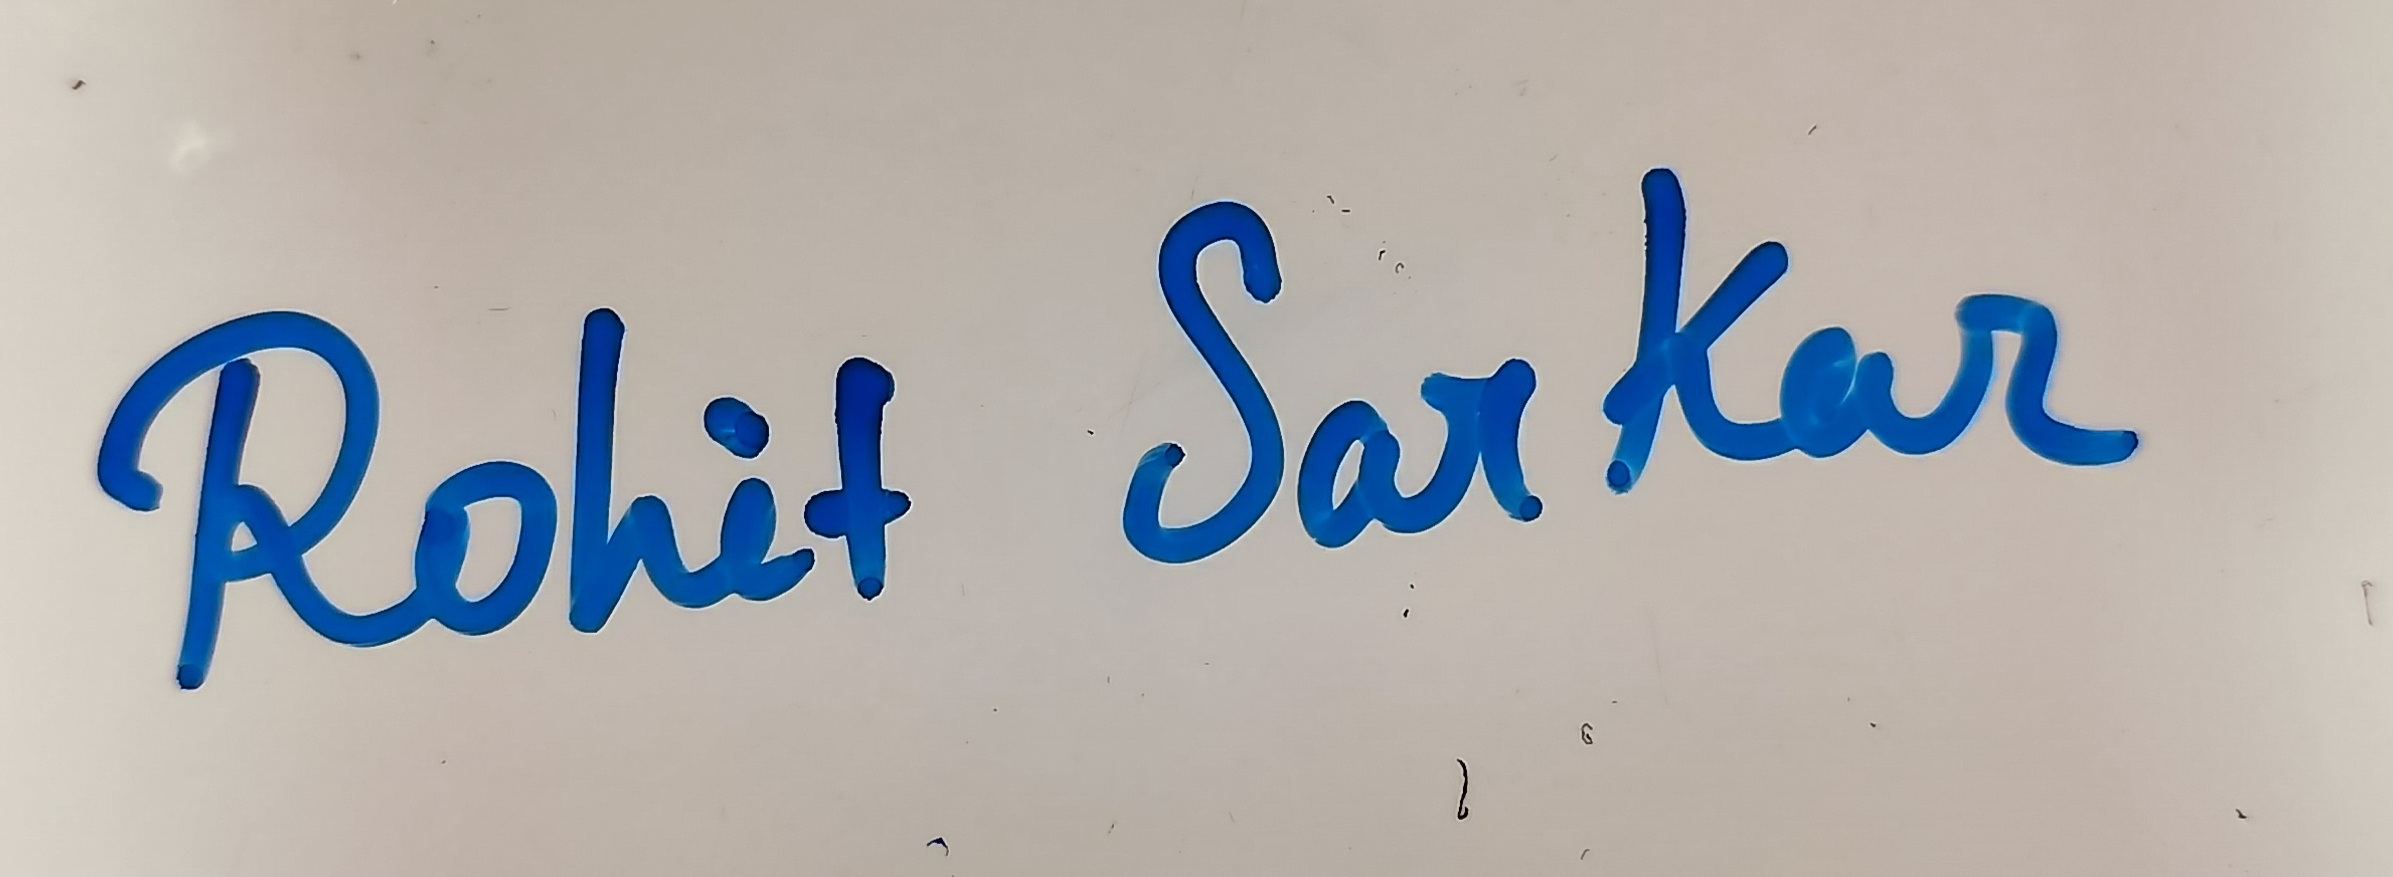 Rohit Sarkar